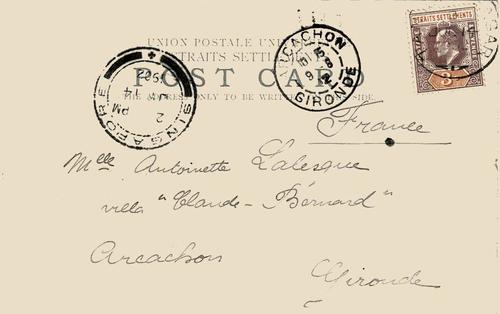 UNION POSTALE UNI
STRAITS SETTLE
POST CARD
THE ADDRESS ONLY TO BE WRITTEN ON THIS SIDE.
SINGAPORE
2 PM
14
ARCACHON
GIRONDE
STRAITS SETTLEMENTS
3
France
Melle Antoinette Lalesque
villa "Claude-Bernard"
Arcachon
Gironde